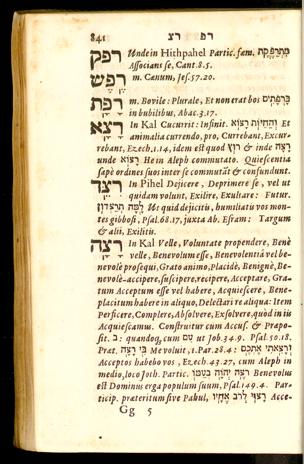 841 רפ רצ
רפק Unde in Hithpahel Partic. fœm. מִתְרַפֶּקֶת
Associans se, Cant. 8. 5.
רֶפֶשׁ m. Cœnum, Jes. 57. 20.
רֶפֶת m. Bovile: Plurale, Et non erat bos בָּרְפָתִים
in bubilibus, Abac. 3. 17.
רָצָא In Kal Cucurrit: Infinit. וְהַחַיּוֹת רָצוֹא Et
animalia currendo, pro, Currebant, Excur-
rebant, Ezech. 1. 14, idem est quod רוּץ & inde רָצֹה
unde רָצוֹא He in Aleph commutato. Quiescentia
sæpè ordines suos inter se commutāt & confundunt.
רָצַד In Pihel Dejicere, Deprimere se, vel ut
quidam volunt, Exilire, Exultare: Futur.
לָמָּה תְּרַצְּדוּן Ut quid dejicitis, humiliatis vos mon-
tes gibbosi, Psal. 68. 17. juxta Ab. Esram: Targum
& alii, Exilitis.
רָצָה In Kal Velle, Voluntate propendere, Benè
velle, Benevolum esse, Benevolentiâ vel be-
nevolè prosequi, Grato animo, Placidè, Benignè, Be-
nevolè-accipere, suscipere, recipere, Acceptare, Gra-
tum Acceptum esse vel habere, Acquiescere, Bene-
placitum habere in aliquo, Delectari re aliqua: Item
Perficere, Complere, Absolvere, Exsolvere, quod in iis
Acquiescamus. Construitur cum Accus. & Præpo-
sit. ב: quandoq, cum עִם ut Job. 34. 9. Psal. 50. 18.
Prat. רָצָה בִּי Me voluit, 1. Par. 28. 4: וְרָצִאתִי אֶתְכֶם
Acceptos habebo vos, Ezech. 43. 27, cum Aleph in
medio, loco Joth. Partic. רוֹצֶה יְהוָה בְּעַמּוֹ Benevolus
est Dominus erga populum suum, Psal. 149. 4. Par-
ticip. præteritum sive Pahul, רָצוּי לְרֹב אֶחָיו Acce-
Gg 5